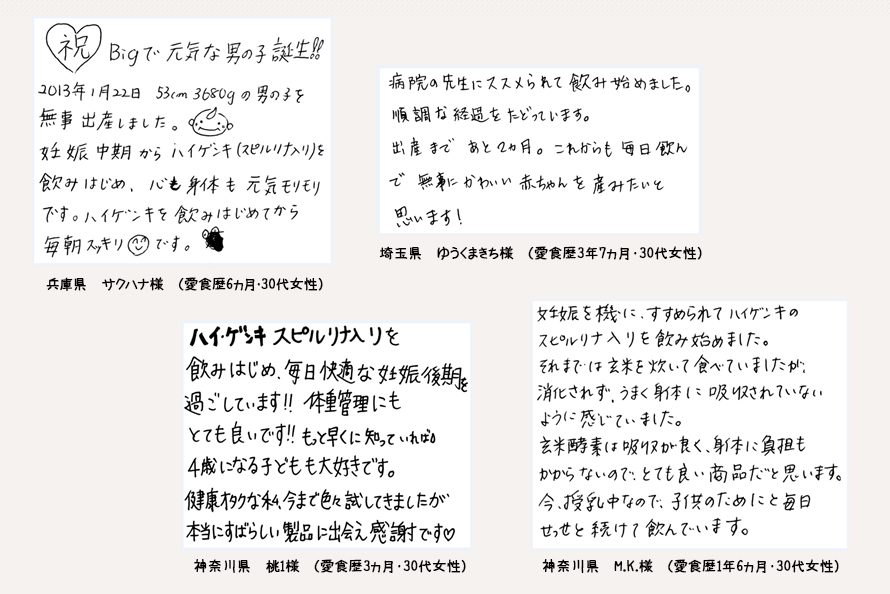 祝 Bigで 元気な男の子誕生!!
2013年1月22日 53cm 3680gの男の子を
無事 出産しました。
妊娠中期から ハイゲンキ(スピルリナ入り)を
飲みはじめ、心も身体も 元気モリモリ
です。ハイゲンキを飲みはじめてから
毎朝スッキリです。
兵庫県 サクハナ様 (愛食歴6カ月・30代女性)
病院の先生にススメられて飲み始めました。
順調な経過をたどっています。
出産まで あと2カ月。これからも毎日飲ん
で 無事にかわいい赤ちゃんを産みたいと
思います!
埼玉県 ゆうくまきち様 (愛食歴3年7カ月・30代女性)
ハイ・ゲンキ スピルリナ入りを
飲みはじめ、毎日快適な妊娠後期を
過ごしています!! 体重管理にも
とても良いです!! もっと早くに知っていれば。
4歳になる子どもも大好きです。
健康オタクな私、今まで色々試してきましたが
本当にすばらしい製品に出会え感謝です♡
神奈川県 桃1様 (愛食歴3カ月・30代女性)
妊娠を機に、すすめられてハイゲンキの
スピルリナ入りを飲み始めました。
それまでは玄米を炊いて食べていましたが、
消化されず、うまく身体に吸収されていない
ように感じていました。
玄米酵素は吸収が良く、身体に負担も
かからないので、とても良い商品だと思います。
今、授乳中なので、子供のためにと毎日
せっせと続けて飲んでいます。
神奈川県 M.K.様 (愛食歴1年6カ月・30代女性)